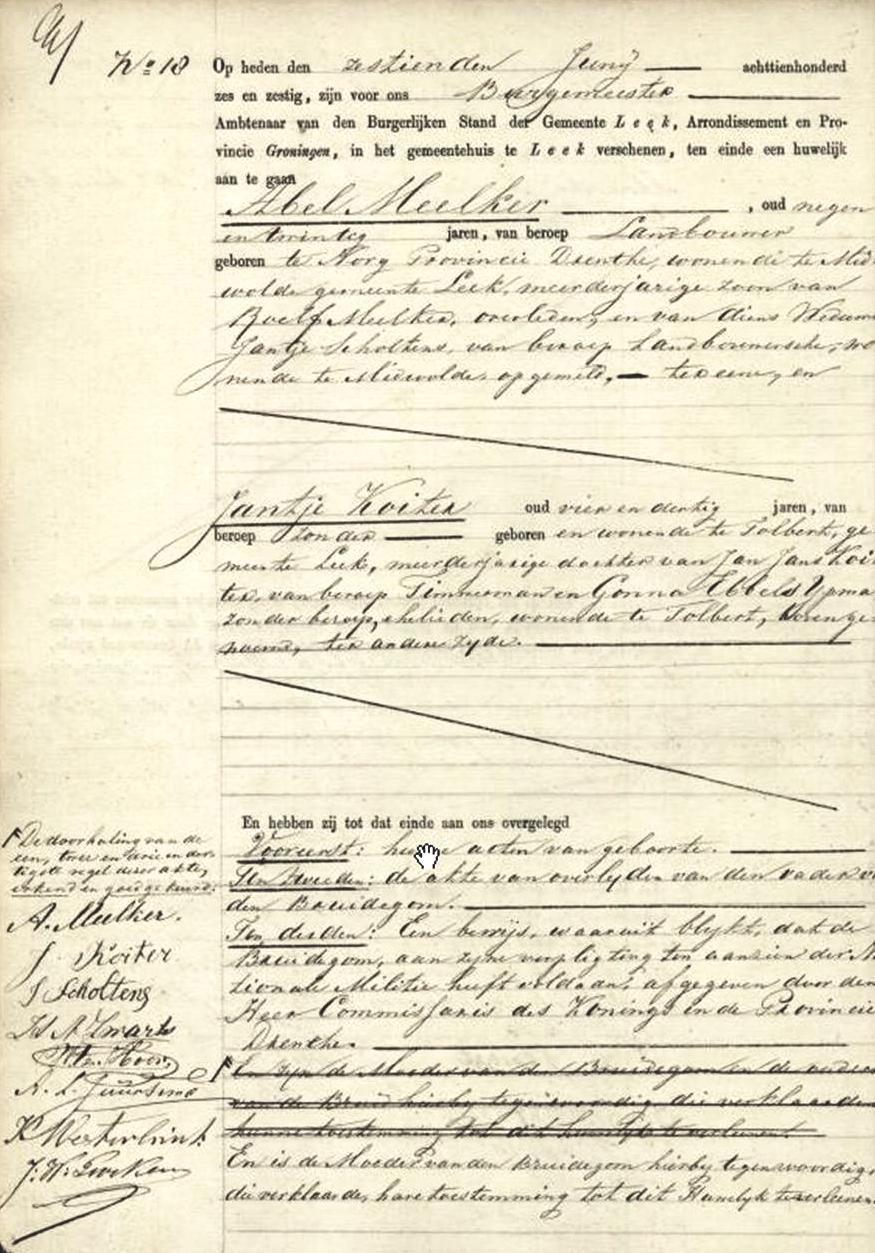 No 18
Op heden den zestienden Junij achttienhonderd
zes en zestig, zijn voor ons Burgemeester
Ambtenaar van den Burgerlijken Stand der Gemeente Leek, Arrondissement en Pro-
vincie Groningen, in het gemeentehuis te Leek verschenen, ten einde een huwelijk
aan te gaan
Abel Meelker, oud negen
en twintig jaren, van beroep Landbouwer
geboren te Norg Provincie Drenthe, wonende te Mid-
wolde gemeente Leek, meerderjarige zoon van
Roelf Meelker, overleden, en van diens Weduwe
Jantje Scholtens, van beroep Landbouwersche, wo
nende te Midwolde opgemeld, ter eene, en
Jantje Koiter oud vier en dertig jaren, van
beroep zonder geboren en wonende te Tolbert, ge
meente Leek, meerderjarige dochter van Jan Jans Koi-
ter, van beroep Timmerman en Gonna Ebbels Ypma
zonder beroep, ehelieden, wonende te Tolbert, bovenge
noemd, ter andere zyde.
En hebben zij tot dat einde aan ons overgelegd
Vooreerst: hunne acten van geboorte.
Ten tweeden: de akte van overlyden van den vader v
den Bruidegom.
Ten derden: Een bewijs, waaruit blykt, dat de
Bruidegom, aan zyne verpligting ten aanzien der N
tionale Militie heeft voldaan, afgegeven door den
Heer Commissaris des Konings in de Provincie
Drenthe.
En zyn de Moeder van den Bruidegom en de ouders
van de Bruid hierby tegenwoordig die verklaarden
hunne toestemming tot dit huwelyk te verleenen.
En is de Moeder van den Bruidegom hierby tegenwoordig,
die verklaarde, hare toestemming tot dit Huwelyk te verleenen.
De doorhaling van de
een, twee en drie en der-
tigste regel dezer akte,
erkend en goedgekeurd.
A. Meelker.
J. Koiter
J Scholtens
A. L. Juursema
K Westerbrink